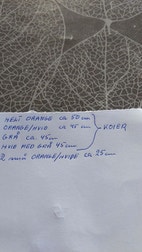 HELT ORANGE ca 50 cm
ORANGE/HVIE ca 45 cm KOIER
GRÅ ca. 45cm
HVIE MED GRÅ 45cm
2 små ORANGE/HVIDE ca 25cm